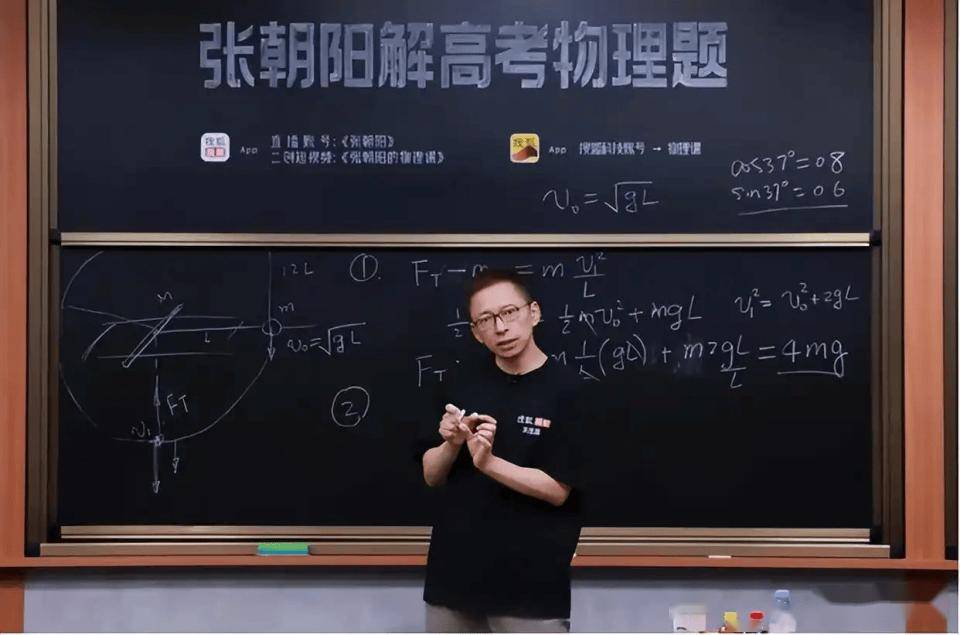 张朝阳解高考物理题
搜狐
视频
App
直播账号:《张朝阳》
二创短视频:《张朝阳的物理课》
搜狐
App 搜狐科技账号 → 物理课
cos37°=08
sin37°=06
v₀=√gL
12L
m
m
L
v₀=√gL
FT
v₁
①.
F_T-m = m v₁²/L
½ = ½mv₀²+mgL
v₁²=v₀²+2gL
F_T (gL)+m2gL/L=4mg
②
搜狐视频